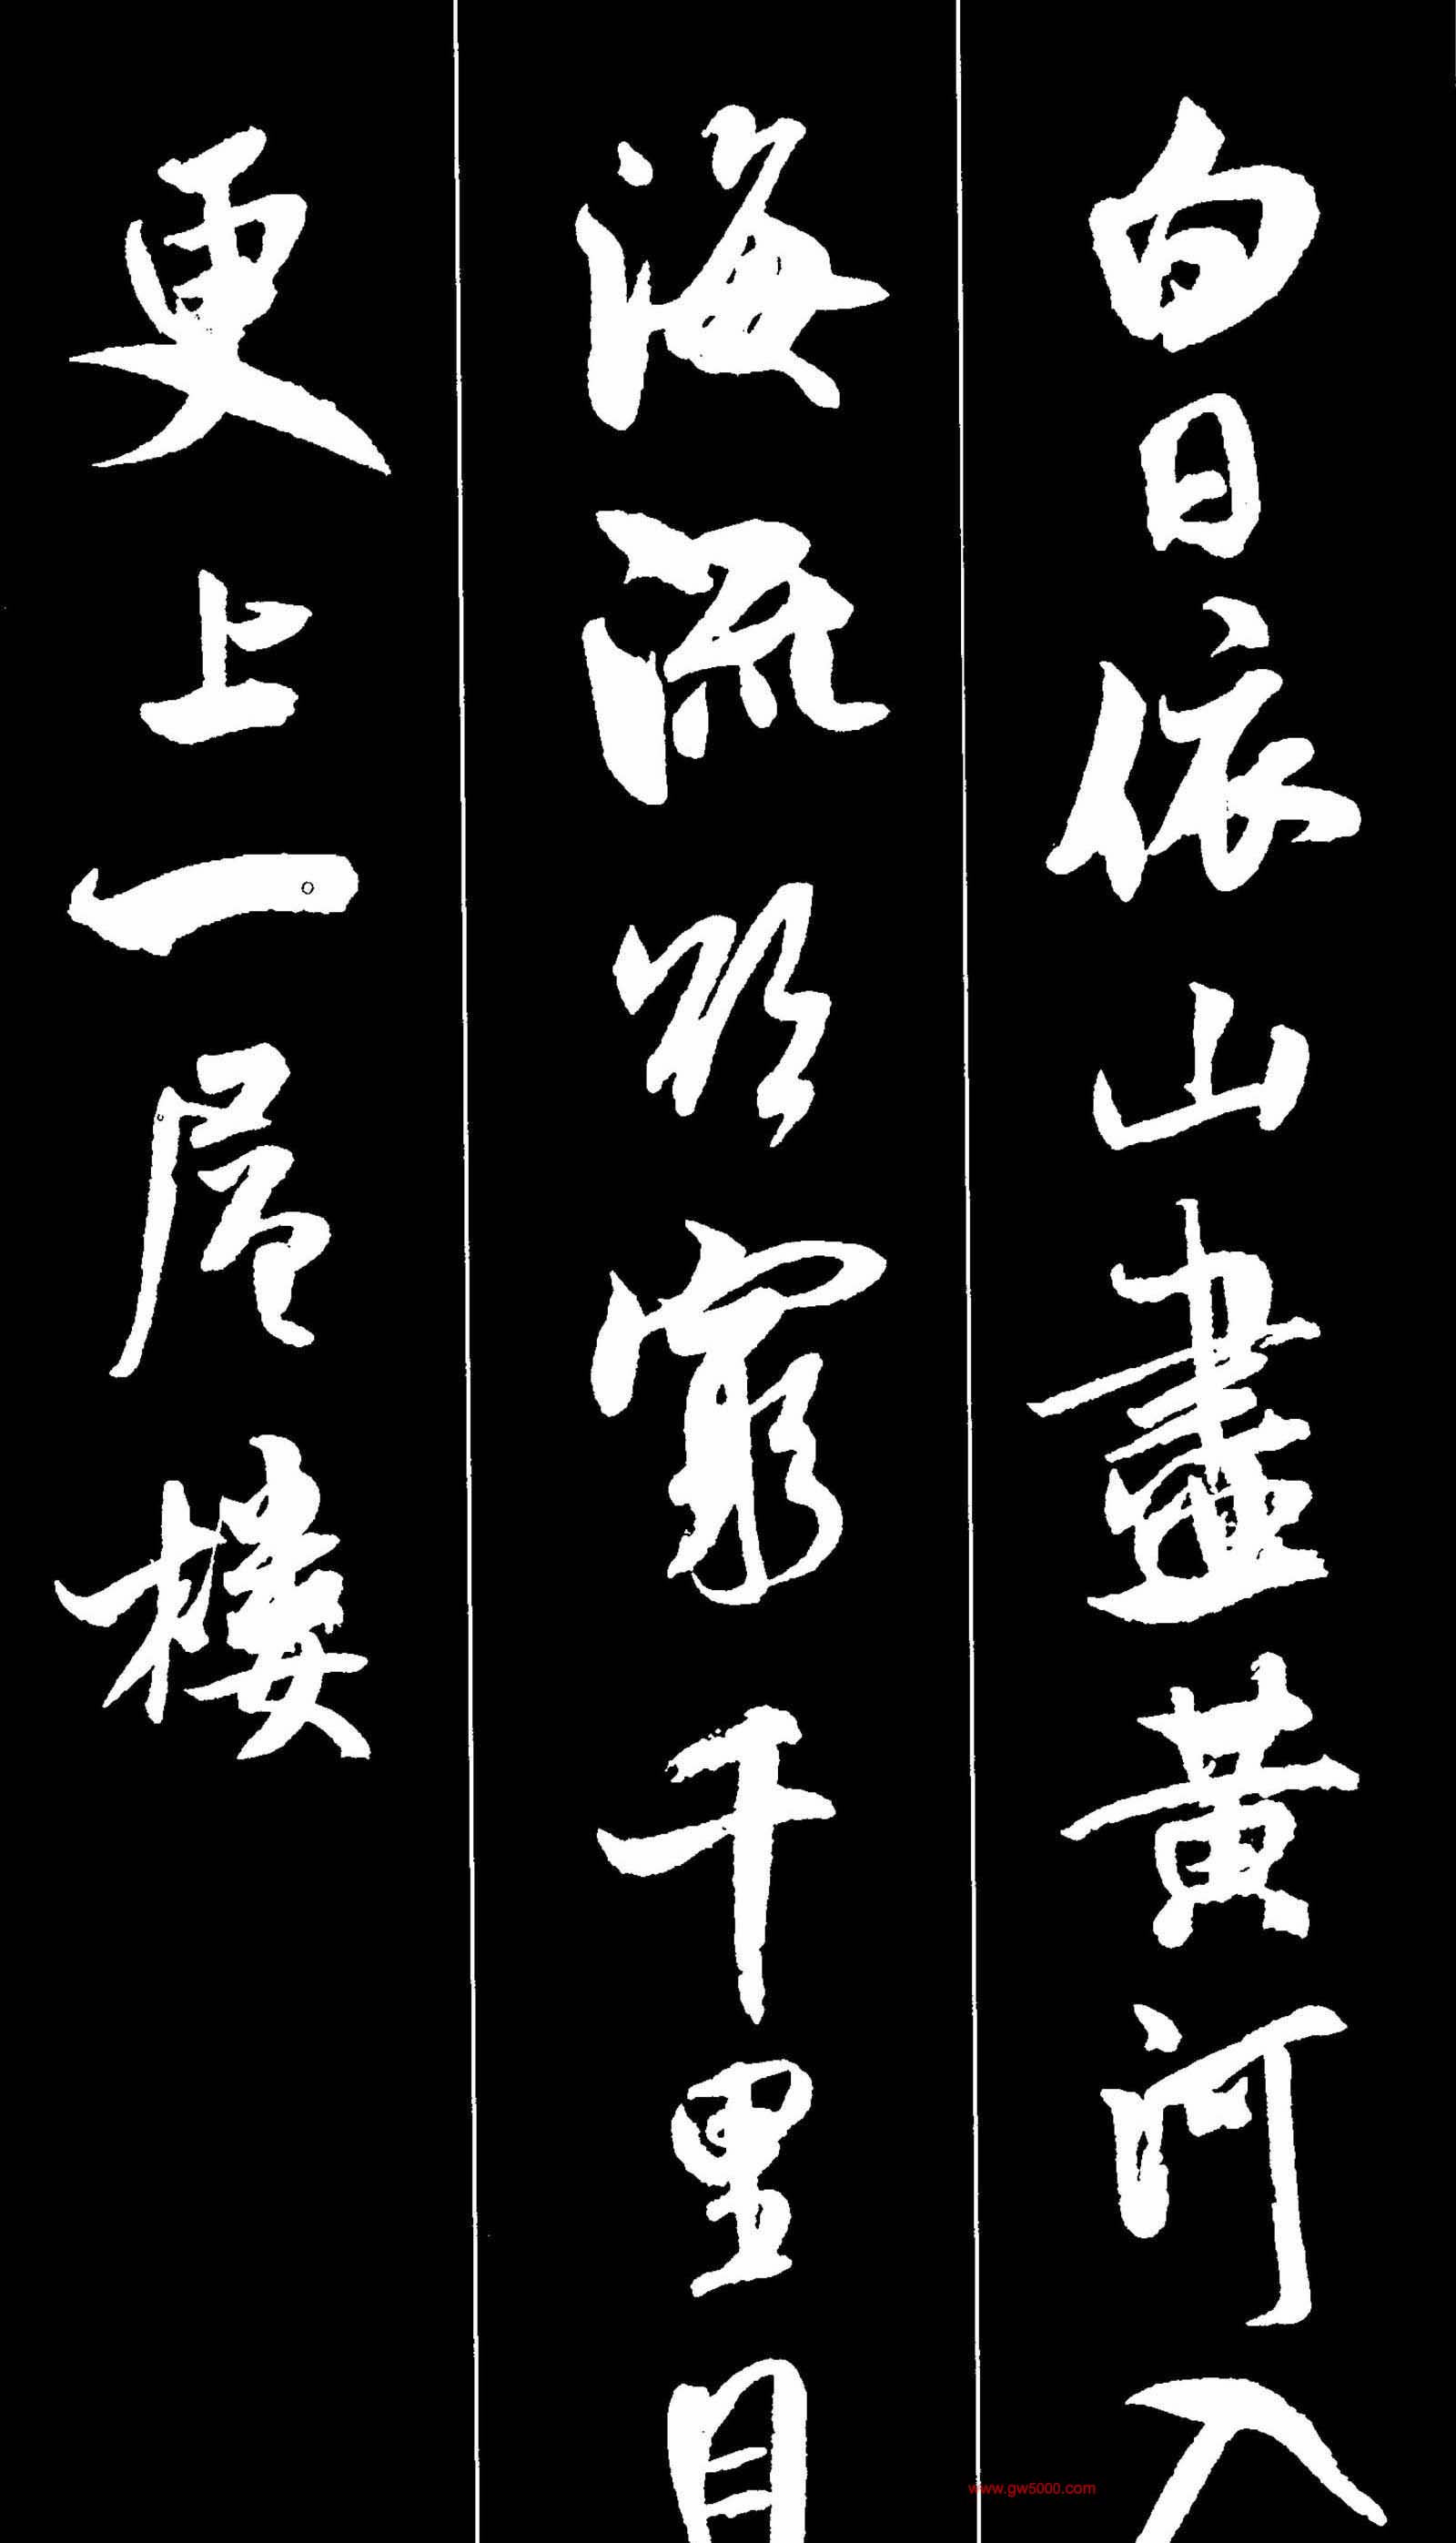 白日依山盡黃河入
海流欲窮千里目
更上一层樓
www.gw5000.com